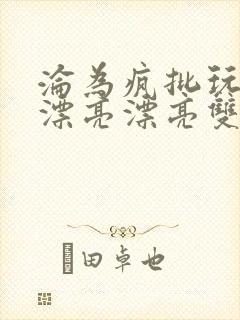 淪為疯批玩
漂亮漂亮雙
田卓也